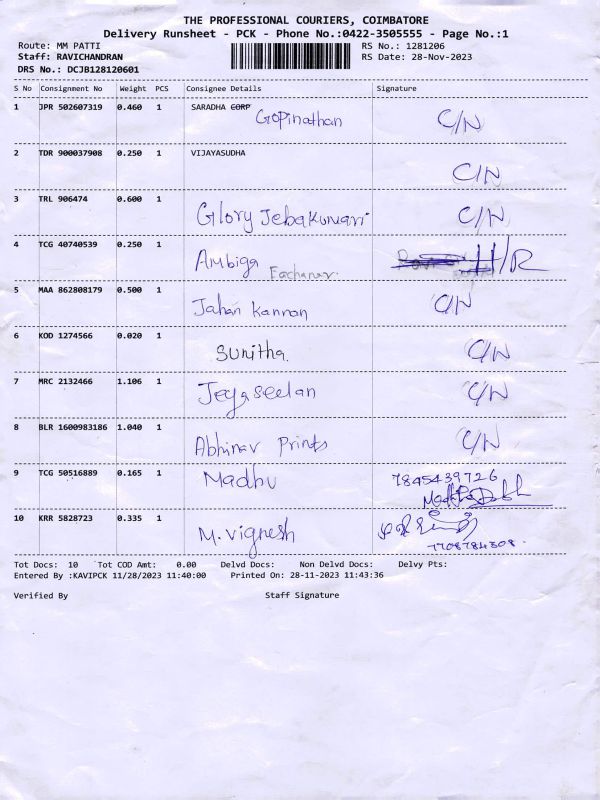 THE PROFESSIONAL COURIERS, COIMBATORE
Delivery Runsheet - PCK - Phone No.:0422-3505555 - Page No.:1
Route: MM PATTI RS No.: 1281206
Staff: RAVICHANDRAN RS Date: 28-Nov-2023
DRS No.: DCJB128120601
S No Consignment No Weight PCS Consignee Details Signature
1 JPR 502607319 0.460 1 SARADHA CORP Gopinathan C/N
2 TDR 900037908 0.250 1 VIJAYASUDHA C/N
3 TRL 906474 0.600 1 Glory Jebakumari C/N
4 TCG 40740539 0.250 1 Ambiga Eachanar. H/R
5 MAA 862808179 0.500 1 Jahan Kannan C/N
6 KOD 1274566 0.020 1 Sunitha. C/N
7 MRC 2132466 1.106 1 Jeyaseelan C/N
8 BLR 1600983186 1.040 1 Abhinav Prints C/N
9 TCG 50516889 0.165 1 Madhu 7845439726
10 KRR 5828723 0.335 1 M. Vignesh
7708784308.
Tot Docs: 10 Tot COD Amt: 0.00 Delvd Docs: Non Delvd Docs: Delvy Pts:
Entered By :KAVIPCK 11/28/2023 11:40:00 Printed On: 28-11-2023 11:43:36
Verified By Staff Signature